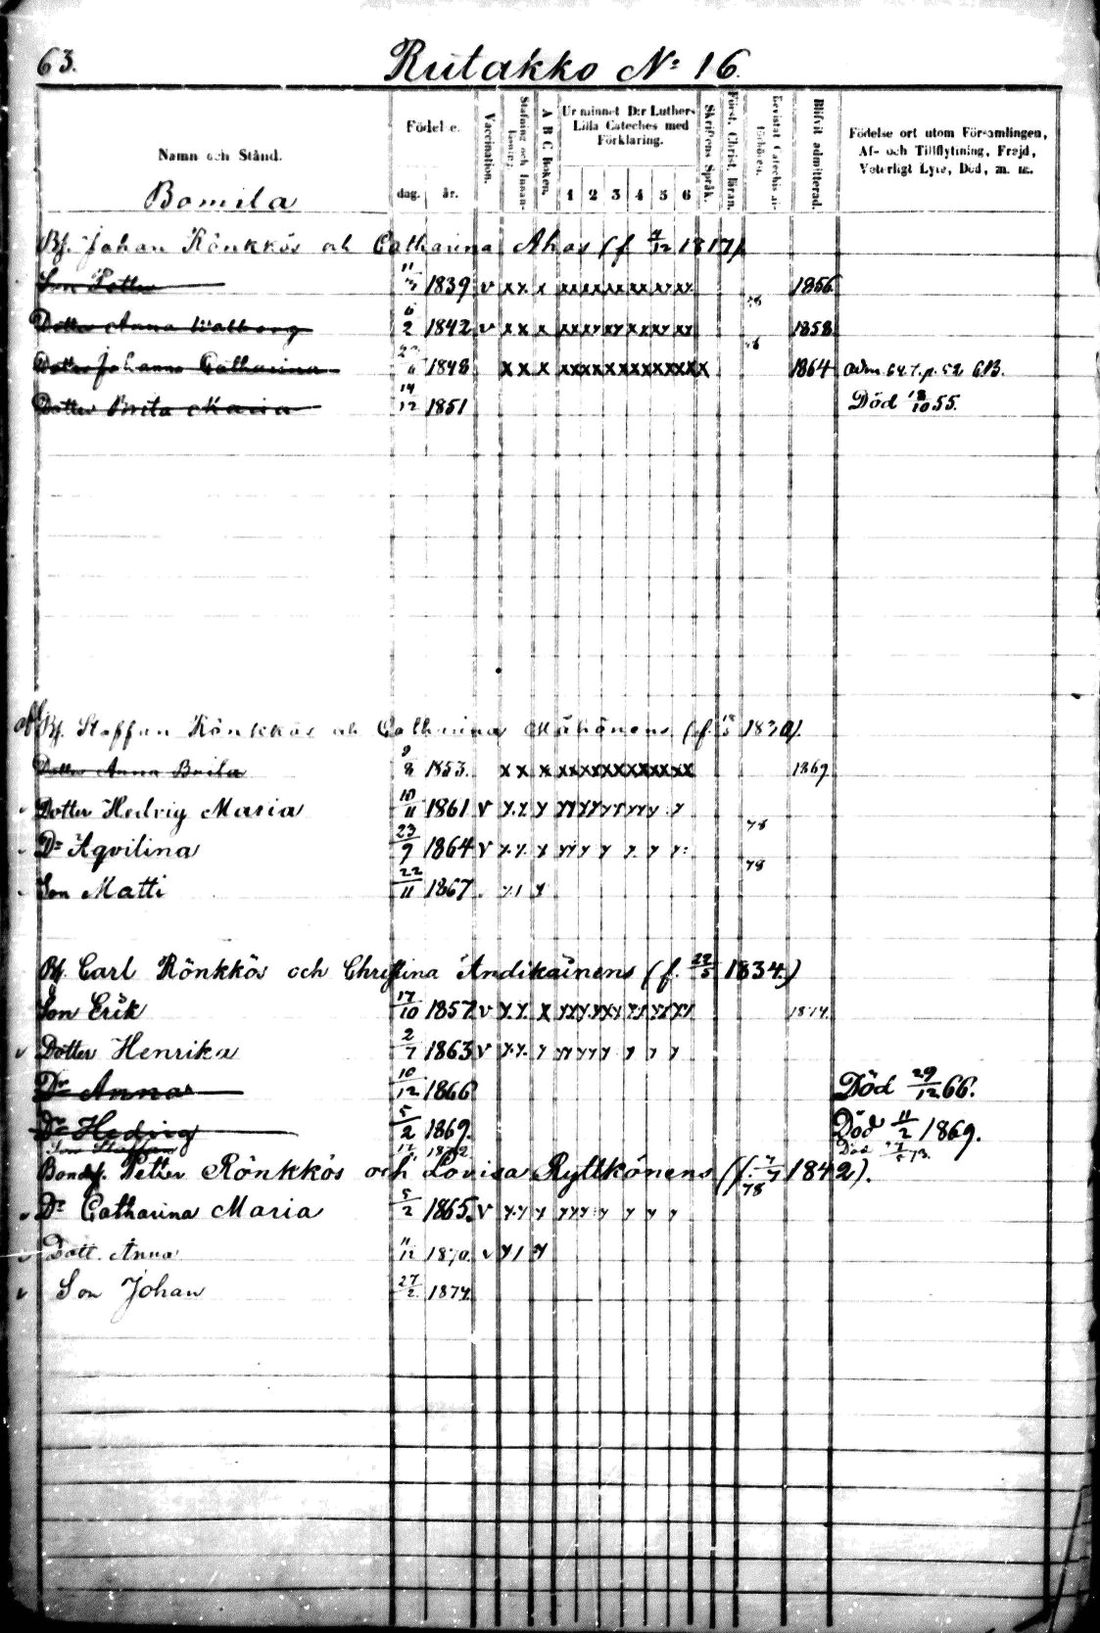 63.
Rutakko No 16.
Namn och Stånd.
Födelse.
dag.
år.
Vaccination.
Stafning och Innan-
läsning.
A B C Boken.
Ur minnet D:r Luthers
Lilla Cateches med
Förklaring.
1 2 3 4 5 6
Skriftens Språk.
Först. Christ. läran.
Bevistat Catechis al-
förhören.
Blifvit admitterad.
Födelse ort utom Församlingen,
Af- och Tillflyttning, Frejd,
Vetterligt Lyte, Död, m. m.
Bomila
Bf. Johan Rönkkös och Catharina Ahos (f. /12 1817).
Son Petter 11/3 1839 v x x x xx xx xx xx xx xx 1856
78
Dotter Anna Walborg 6/2 1842 v x x x xx xx xx xx xx xx 1858
78
Dotter Johanna Catharina /6 1848 x x x xx xx xx xx xx xx x 1864 adm. 64. T. p. 52 CB.
Dotter Brita Maria 14/12 1851 Död 18/10 55.
Bf. Staffan Rönkkös och Catharina Mähönens (f. 1830).
Dotter Anna Brita 9/8 1853. x x x xx xx xx xx xx xx 1869
Dotter Hedvig Maria 10/11 1861 v x x x
78
Dr Aqvilina 23/9 1864 v x x x
78
Son Matti 22/11 1867.
Bf. Carl Rönkkös och Christina Andikainens (f. 22/5 1834.)
Son Erik 17/10 1857 v x x x 1874.
Dotter Henrika 2/7 1863 v x x x
Dr Anna 10/12 1866 Död 29/12 66.
Dr Hedvig 5/2 1869. Död 11/2 1869.
Son Staffan 1872 Död 73.
Bondef. Petter Rönkkös och Lovisa Ryttkönens (f. 7/7 1842).
78
Dr Catharina Maria 5/2 1865. v x x x
Dott. Anna 11/12 1870. v
Son Johan 27/2 1874.